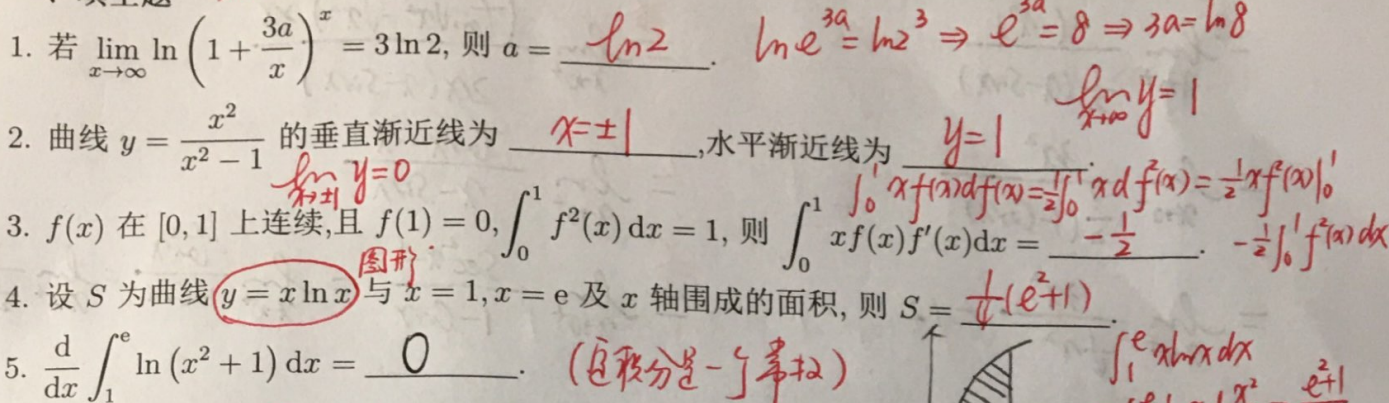 1. 若 lim x→∞ ln (1 + 3a/x)^x = 3 ln 2, 则 a = ln2 . ln e^3a = ln 2^3 ⇒ e^3a = 8 ⇒ 3a = ln 8
lim x→∞ y = 1
2. 曲线 y = x²/(x² − 1) 的垂直渐近线为 x=±1 ,水平渐近线为 y=1 .
lim x→±1 y=0
∫₀¹ x f(x) d f(x) = ½∫₀¹ x d f²(x) = ½ x f²(x)|₀¹
3. f(x) 在 [0, 1] 上连续,且 f(1) = 0, ∫₀¹ f²(x) dx = 1, 则 ∫₀¹ x f(x) f′(x)dx = −½ . −½∫₀¹ f²(x) dx
图形
4. 设 S 为曲线 y = x ln x 与 x = 1, x = e 及 x 轴围成的面积, 则 S = ¼(e²+1) .
5. d/dx ∫₁ᵉ ln (x² + 1) dx = 0 . (定积分是一个常数) ∫₁ᵉ x ln x dx